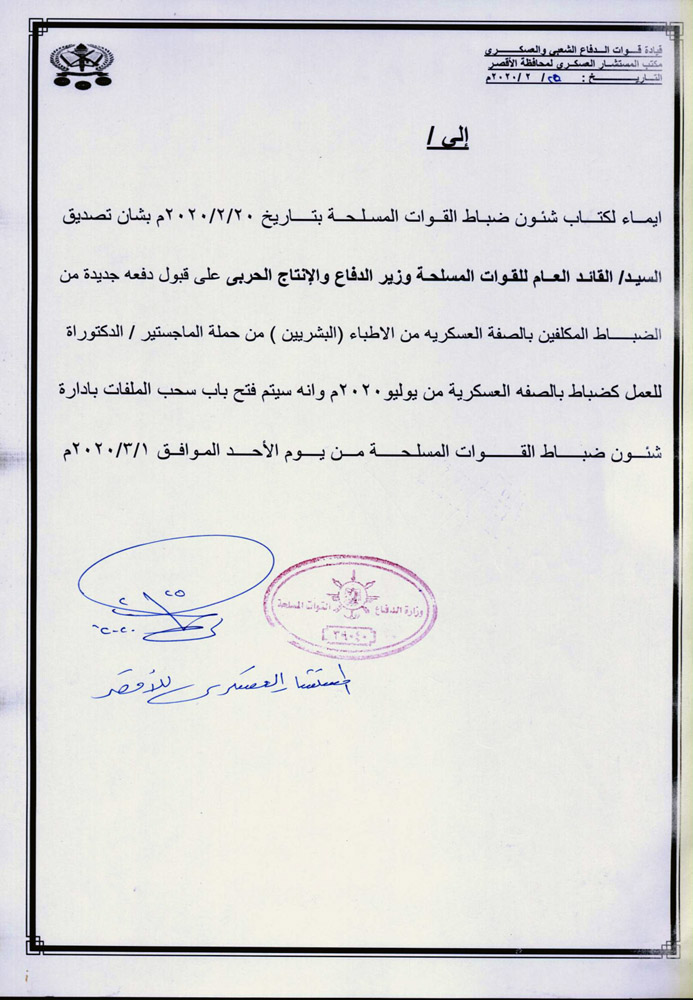 قيادة قوات الدفاع الشعبى والعسكرى
مكتب المستشار العسكرى لمحافظة الأقصر
التاريخ : ٢٥ / ٢ /٢٠٢٠م
إلى /
ايماء لكتاب شئون ضباط القوات المسلحة بتاريخ ٢٠٢٠/٢/٢٠م بشان تصديق
السيد/ القائد العام للقوات المسلحة وزير الدفاع والإنتاج الحربى على قبول دفعه جديدة من
الضباط المكلفين بالصفة العسكريه من الاطباء (البشريين ) من حملة الماجستير / الدكتوراة
للعمل كضباط بالصفه العسكرية من يوليو ٢٠٢٠م وانه سيتم فتح باب سحب الملفات بادارة
شئون ضباط القوات المسلحة من يوم الأحد الموافق ٢٠٢٠/٣/١م
وزارة الدفاع القوات المسلحة
٣٩٠٤٠
٢٥
٢
٢٠٢٠
المستشار العسكرى للأقصر